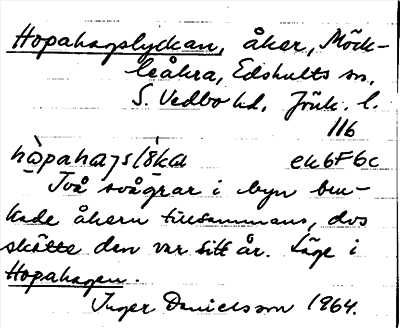 Hopahagslyckan, åker, Möck-
leåkra, Edshults sn,
S. Vedbo hd. Jönk. l.
116
hòpaha̱ʒslə̀ka ek6F6c
Två svågrar i byn bru-
kade åkern tillsammans, dvs
skötte den var sitt år. Läge i
Hopahagen.
Inger Danielsson 1964.